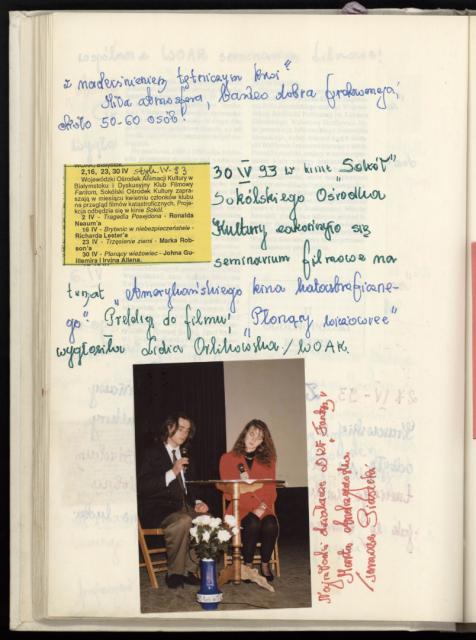 z nadciśnieniem tętniczym krwi"
Miła atmosfera, bardzo dobra frekwencja,
około 50-60 osób!
2,16, 23, 30 IV
Wojewódzki Ośrodek Animacji Kultury w
Białymstoku i Dyskusyjny Klub Filmowy
Fantom, Sokólski Ośrodek Kultury zapra-
szają w miesiącu kwietniu członków klubu
na przegląd filmów katastroficznych. Proje-
kcja odbędzie się w kinie Sokół.
2 IV - Tragedia Posejdona - Ronalda
Neaum'a
16 IV - Brytanic w niebezpieczeństwie -
Richarda Lester'a
23 IV - Trzęsienie ziemi - Marka Rob-
son'a
30 IV - Płonący wieżowiec - Johna Gu-
illemira i Irvina Allena.
30 IV 93 w kinie "Sokół"
Sokólskiego Ośrodka
Kultury zakończyło się
seminarium filmowe na
temat „Amerykańskiego kina katastroficzne-
go". Prelekcję do filmu, „Płonący wieżowiec"
wygłosiła Lidia Orlikowska / WOAK.
Najmłodsi działacze DKF "Fantom"
Marta
Tomasz